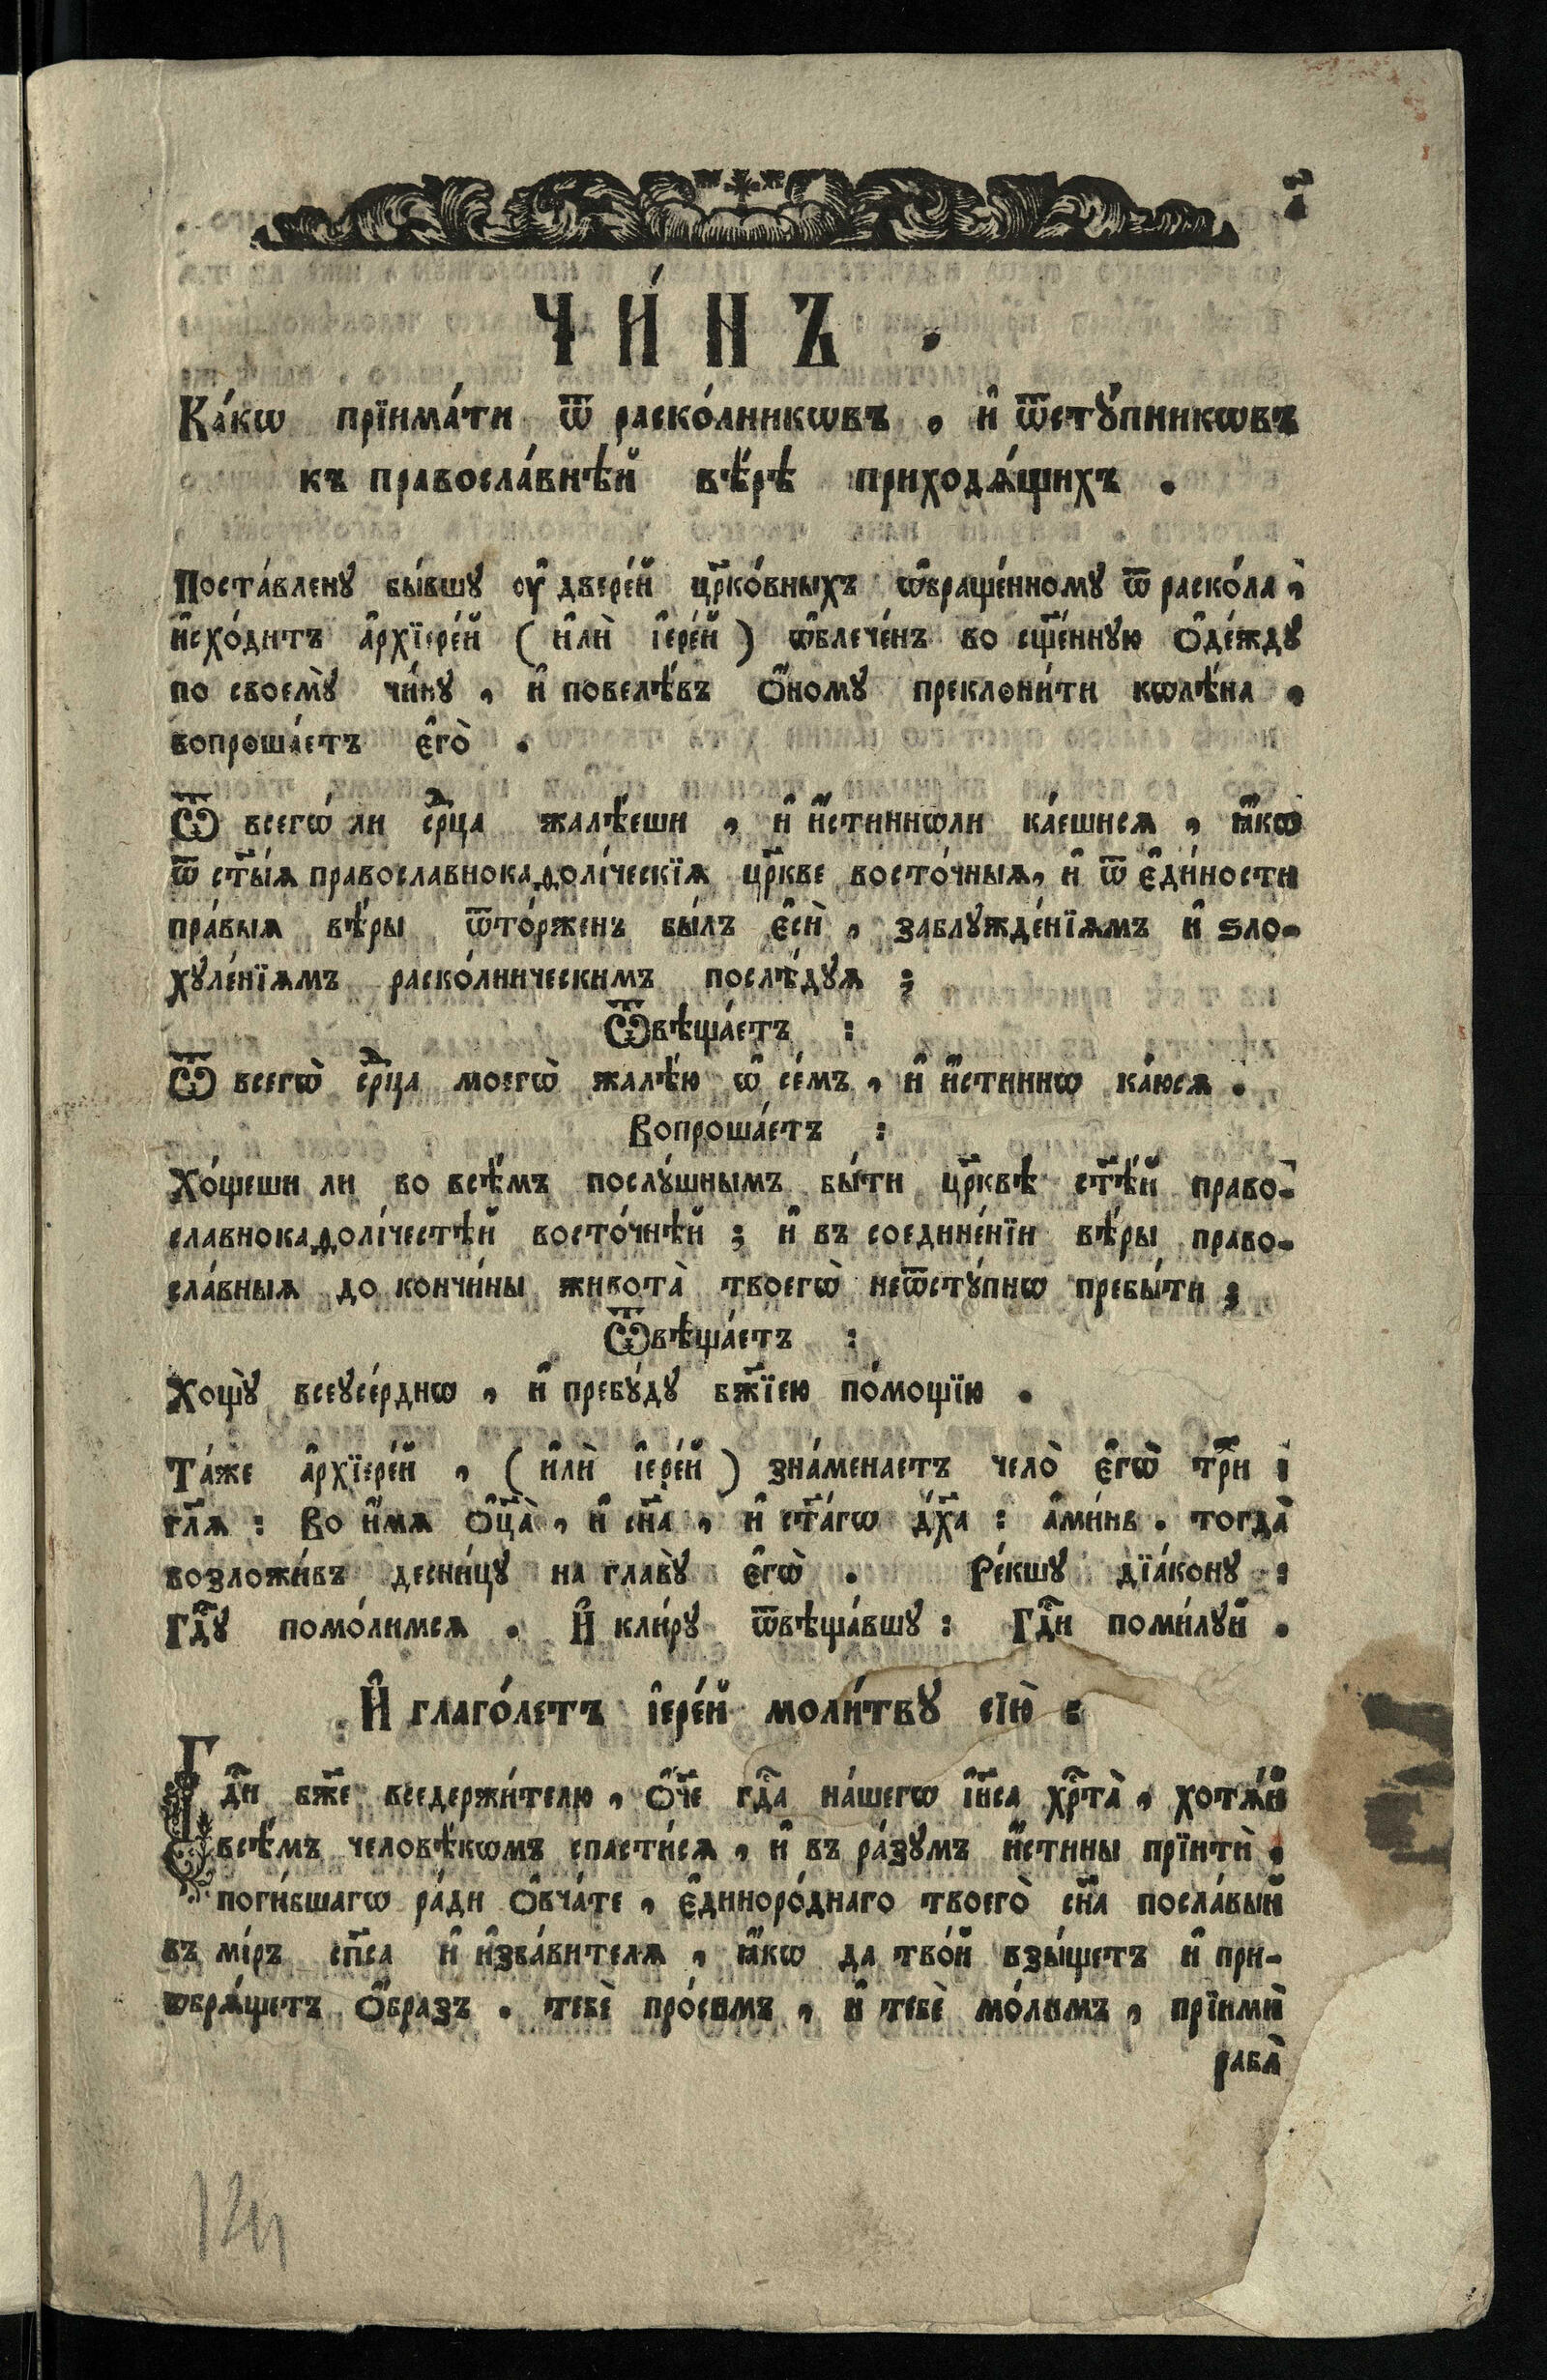 ЧИ́НЪ .
Ка́кѡ прїима́ти ѿ раско́лникѡвъ , и҆ ѿстꙋ́пникѡвъ
къ правосла́внѣй вѣ́рѣ приходѧ́щихъ .
Поста́вленꙋ бы́вшꙋ оу҆ двере́й цр҃ко́вныхъ ѡ҆браще́нномꙋ ѿ раско́ла ,
и҆схо́дитъ а҆рхїере́й ( и҆лѝ і҆ере́й ) ѡ҆блече́нъ во сщ҃е́ннꙋю ѻ҆де́ждꙋ
по своемꙋ̀ чи́нꙋ , и҆ повелѣ́въ ѻ҆́номꙋ преклони́ти кѡлѣ́на ,
вопроша́етъ є҆го̀ .
Ѿ всегѡ́ ли ср҃ца жалѣ́еши , и҆ и҆́стиннѡли ка́ешисѧ , ꙗ҆́кѡ
ѿ ст҃ы́ѧ православнокаѳолі́ческїѧ цр҃кве восто́чныѧ, и҆ ѿ є҆ди́ности
пра́выѧ вѣ́ры ѿто́рженъ бы́лъ є҆сѝ , заблꙋжде́нїѧмъ и҆ ѕло-
хꙋле́нїѧмъ раско́лническимъ послѣ́дꙋѧ ;
Ѿвѣща́етъ :
Ѿ всегѡ̀ ср҃ца моегѡ̀ жалѣ́ю ѡ҆ се́мъ , и҆ и҆́стиннѡ ка́юсѧ .
Вопроша́етъ :
Хо́щеши ли во все́мъ послꙋ́шнымъ бы́ти цр҃квѣ ст҃ѣ́й право-
славнокаѳолі́честѣй восто́чнѣй ; и҆ въ соедине́нїи вѣ́ры право-
сла́вныѧ до кончи́ны живота̀ твоегѡ̀ неѿстꙋ́пнѡ пребы́ти ;
Ѿвѣща́етъ :
Хощꙋ̀ всеꙋсе́рднѡ , и҆ пребꙋ́дꙋ бж҃їею по́мощїю .
Та́же а҆рхїере́й , ( и҆лѝ і҆ере́й ) зна́менаетъ чело̀ є҆гѡ̀ тр҃и :
гл҃ѧ : Во и҆́мѧ ѻ҆ц҃а̀ , и҆ сн҃а , и҆ ст҃а́гѡ дх҃а : а҆ми́нь . тогда̀
возложи́въ десни́цꙋ на главꙋ̀ є҆гѡ̀ . Ре́кшꙋ дїа́конꙋ :
Гд҃ꙋ помо́лимсѧ . И҆ кли́рꙋ ѿвѣща́вшꙋ : Гд҃и поми́лꙋй .
И҆ глаго́летъ і҆ере́й моли́твꙋ сїю̀ :
Гд҃и бж҃е вседержи́телю , ѻ҆́ч҃е гд҃а на́шегѡ і҆и҃са хр҃та̀ , хотѧ́й
всѣ́мъ человѣ́кѡмъ спасти́сѧ , и҆ въ ра́зꙋмъ и҆́стины прїитѝ .
поги́бшагѡ ра́ди ѻ҆вча́те , є҆диноро́днаго твоего̀ сн҃а посла́вый
въ мі́ръ сп҃са и҆ и҆зба́вителѧ , ꙗ҆́кѡ да тво́й взы́щетъ и҆ при-
ѡбрѧ́щетъ ѻ҆́бразъ . тебѐ про́симъ , и҆ тебѐ мо́лимъ , прїимѝ
раба̀